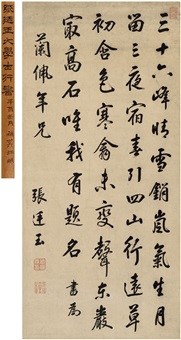 三十六峰晴雪銷嵐氣生月
留三夜宿春引四山行遠草
初含色寒禽未變聲東巖
冣高石唯我有題名 書為
蘭佩年兄
張廷玉
張廷玉大學士行書